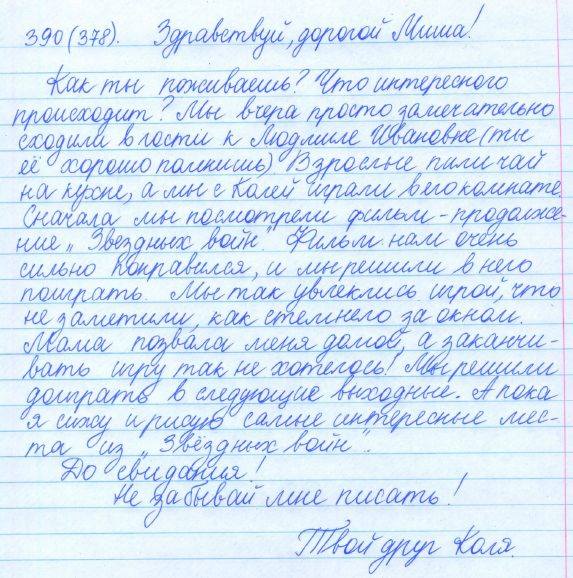 390(378). Здравствуй, дорогой Миша!
Как ты поживаешь? Что интересного
происходит? Мы вчера просто замечательно
сходили в гости к Людмиле Ивановне (ты
её хорошо помнишь). Взрослые пили чай
на кухне, а мы с Колей играли в его комнате.
Сначала мы посмотрели фильм - продолже-
ние „Звездных войн". Фильм нам очень
сильно понравился, и мы решили в него
поиграть. Мы так увлеклись игрой, что
не заметили, как стемнело за окном.
Мама позвала меня домой, а заканчи-
вать игру так не хотелось! Мы решили
доиграть в следующие выходные. А пока
я сижу и рисую самые интересные мес-
та из „Звёздных войн".
До свидания!
Не забывай мне писать!
Твой друг Коля.